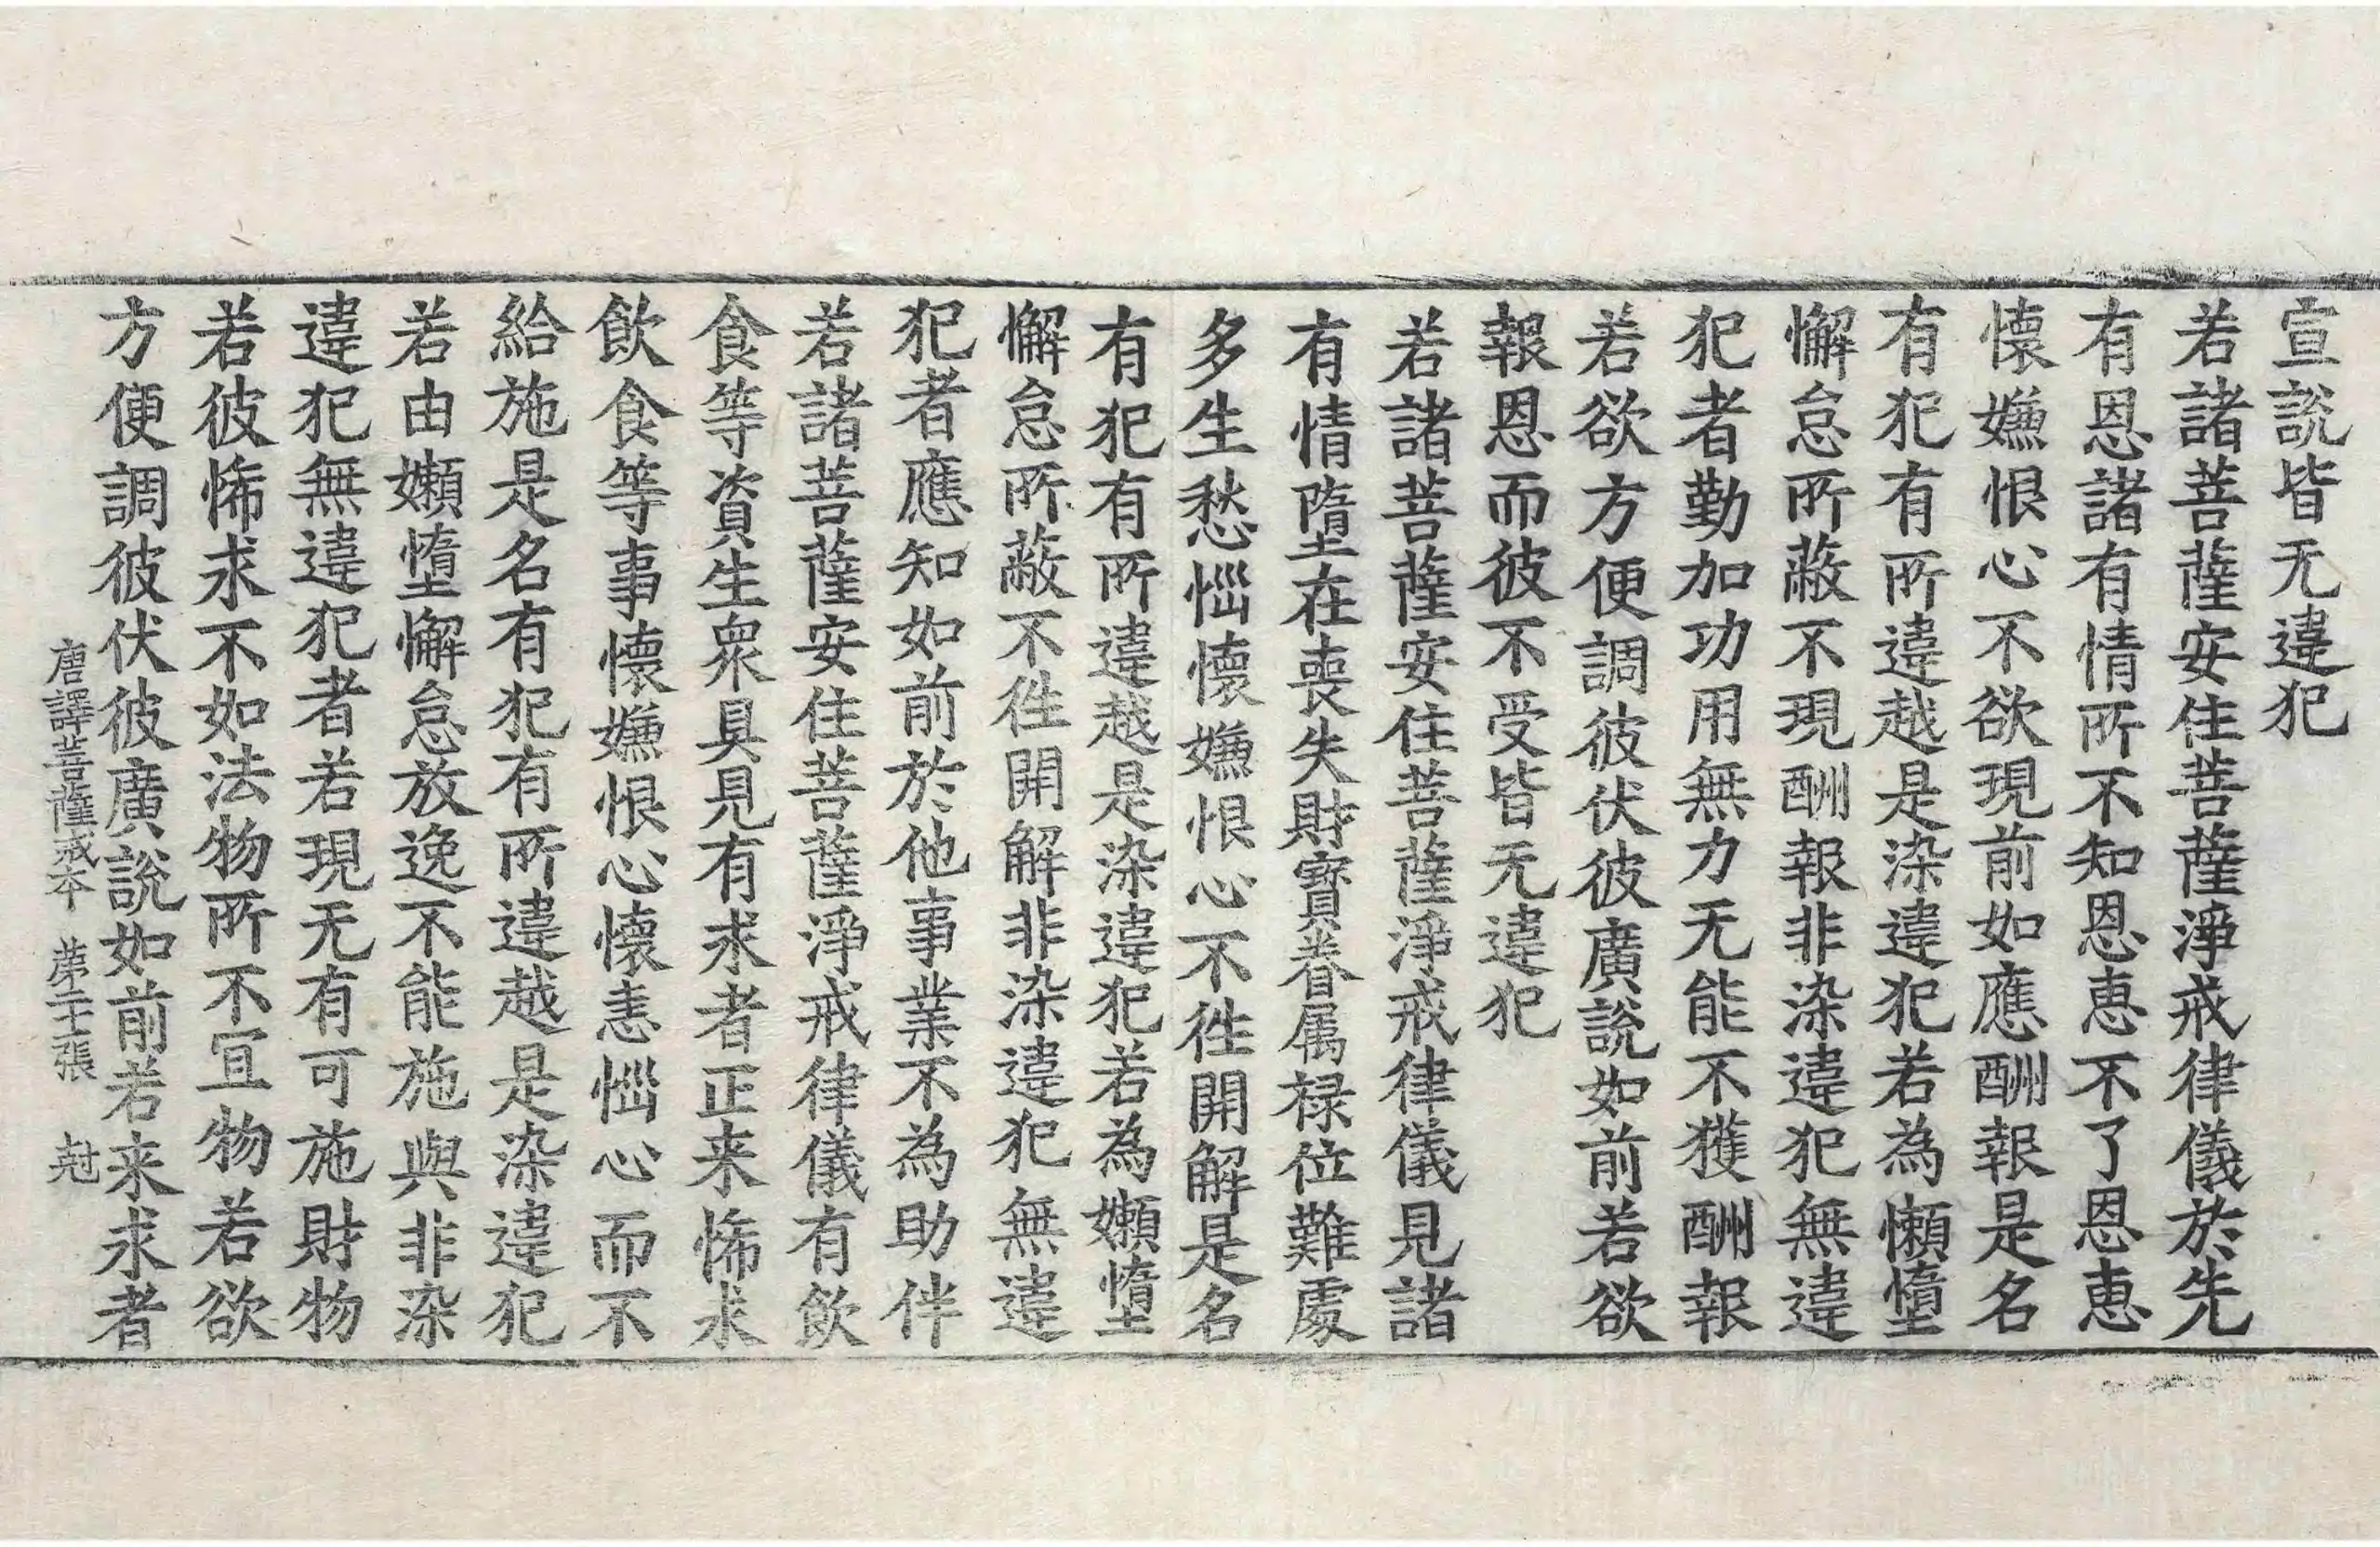 宣說皆无違犯
若諸菩薩安住菩薩淨戒律儀於先
有恩諸有情所不知恩恵不了恩恵
懷嫌恨心不欲現前如應酬報是名
有犯有所違越是染違犯若為懶墮
懈怠所蔽不現酬報非染違犯無違
犯者勤加功用無力无能不獲酬報
若欲方便調彼伏彼廣說如前若欲
報恩而彼不受皆无違犯
若諸菩薩安住菩薩淨戒律儀見諸
有情墮在喪失財寶眷属禄位難處
多生愁惱懷嫌恨心不徃開解是名
有犯有所違越是染違犯若為嬾惰
懈怠所蔽不徃開解非染違犯無違
犯者應知如前於他事業不為助伴
若諸菩薩安住菩薩淨戒律儀有飲
食等資生眾具見有求者正来悕求
飲食等事懷嫌恨心懷恚惱心而不
給施是名有犯有所違越是染違犯
若由嬾墮懈怠放逸不能施與非染
違犯無違犯者若現无有可施財物
若彼悕求不如法物所不宜物若欲
方便調彼伏彼廣說如前若来求者
唐譯菩薩戒本 苐二十張 尅